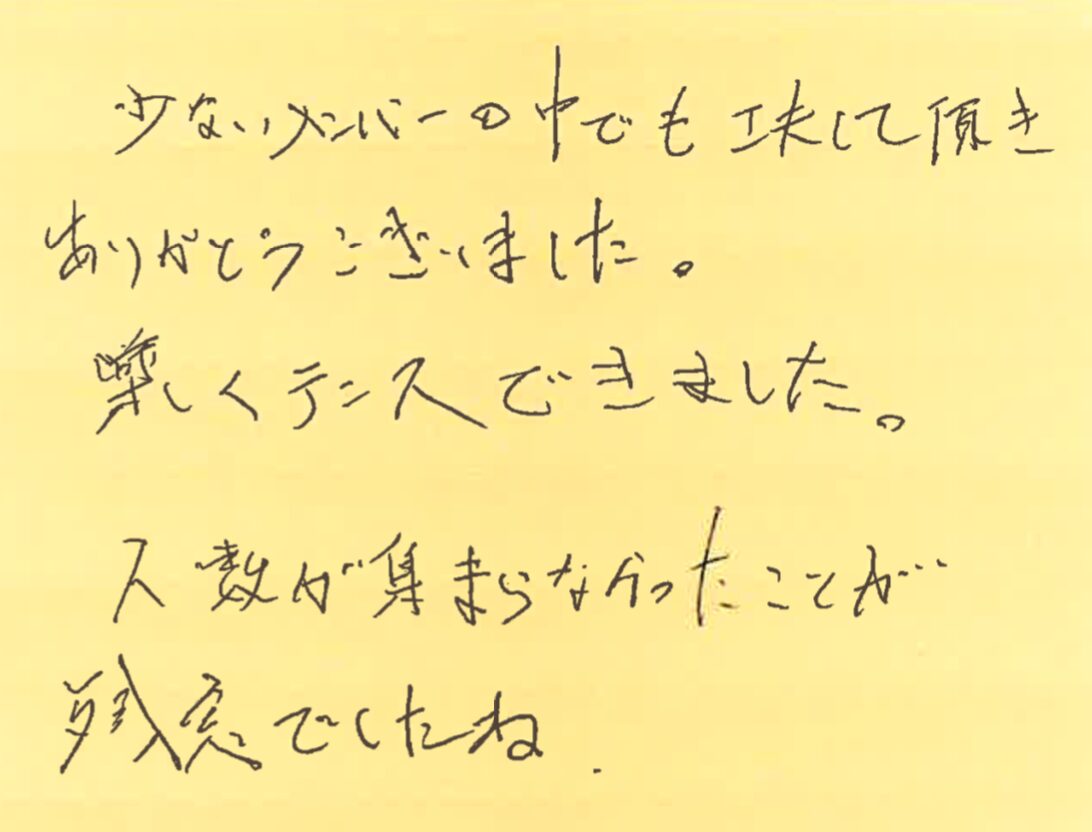 少ないメンバーの中でも工夫して頂き
ありがとうございました。
楽しくテニスできました。
人数が集まらなかったことが
残念でしたね.